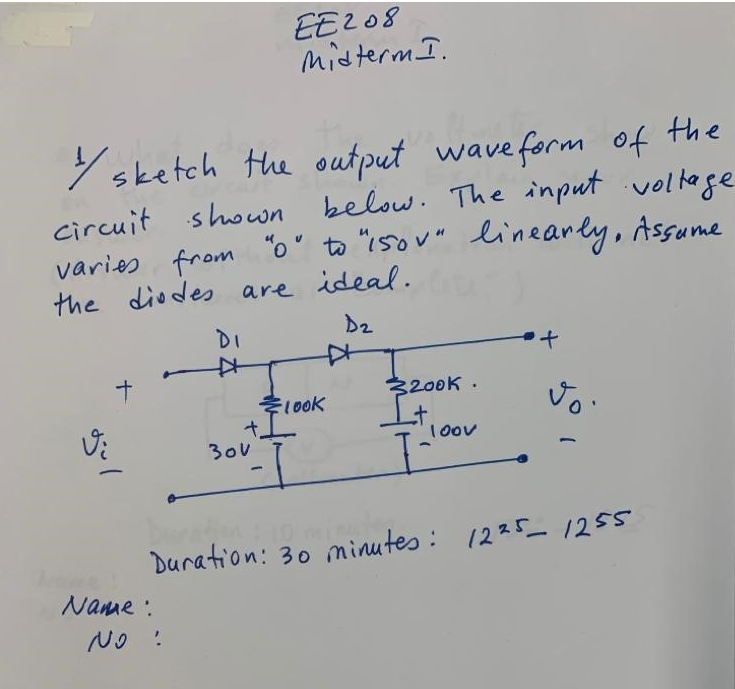 EE208
Midterm I.
1/ sketch the output waveform of the
circuit shown below. The input voltage
varies from "0" to "150v" linearly. Assume
the diodes are ideal.
D1
D2
+
+
100K
200K.
Vi
-
+
30V
-
+
100V
-
Vo.
-
Duration: 30 minutes: 1225 - 1255
Name:
No: